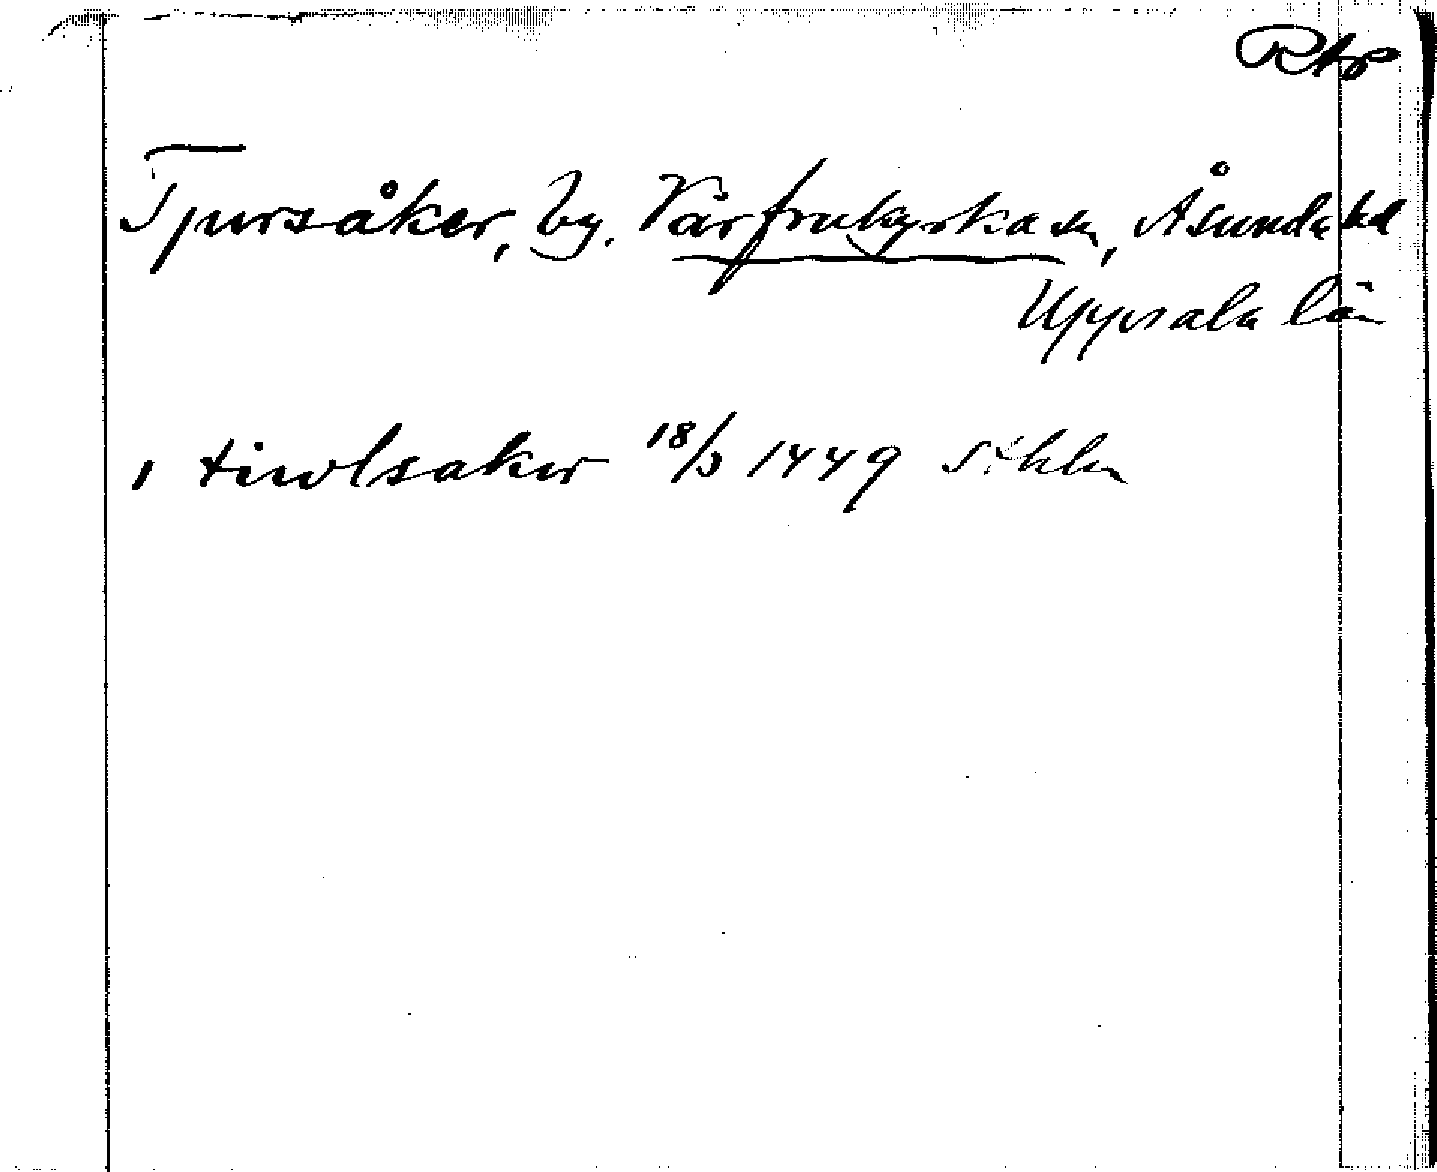 Rtp
Tjursåker, by. Vårfrukyrka sn, Åsunda hd
Uppsala län
, tiwlsaker 18/3 1449 Sthlm